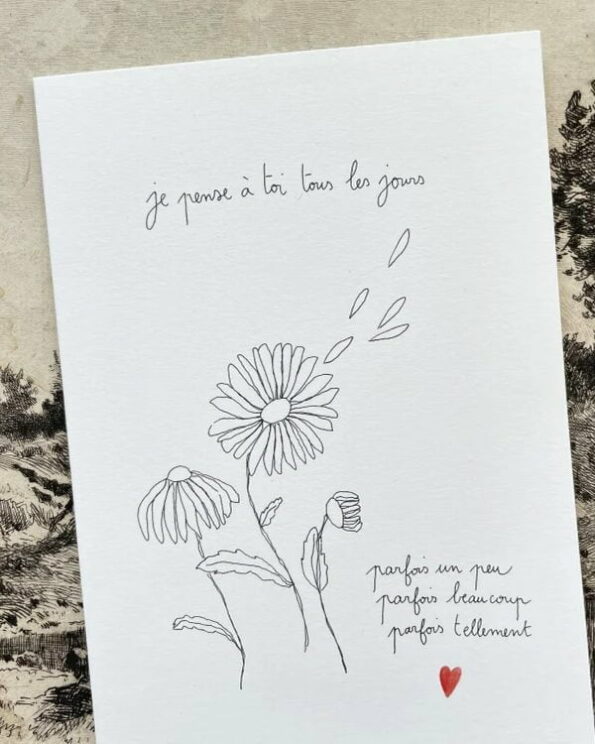 je pense à toi tous les jours
parfois un peu
parfois beaucoup
parfois tellement